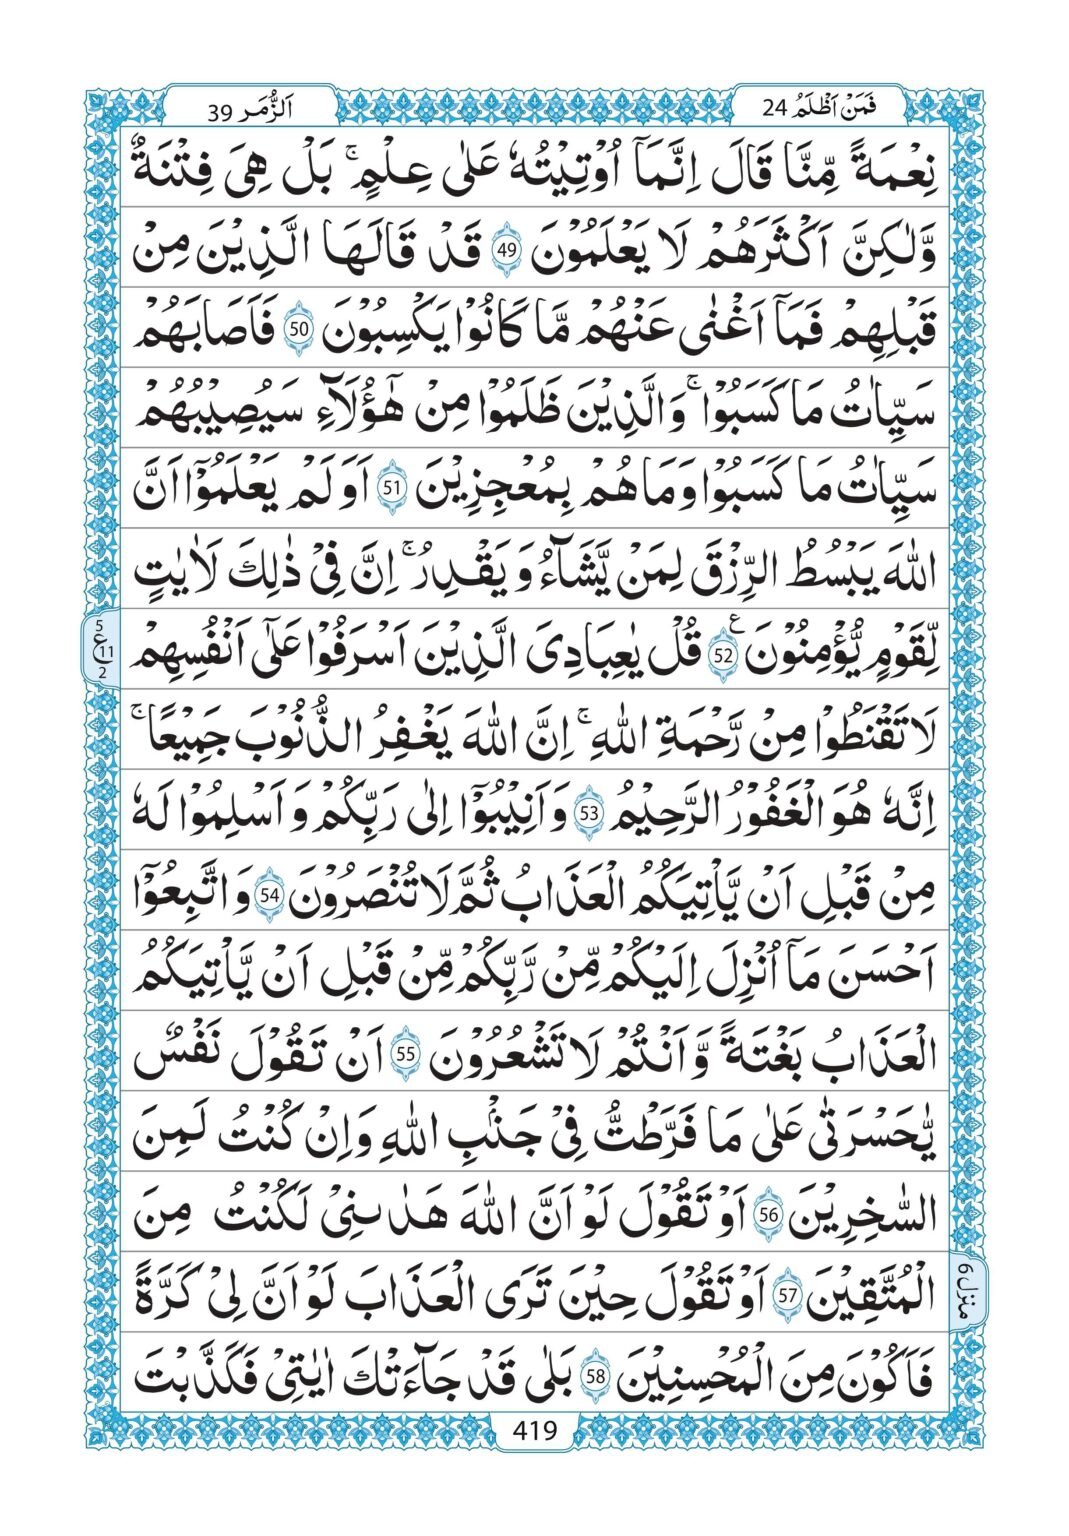 فَمَنۡ اَظۡلَمُ 24
اَلزُّمَر 39
نِعۡمَةً مِّنَّا قَالَ اِنَّمَاۤ اُوۡتِيۡتُهٗ عَلٰى عِلۡمٍ ۚ بَلۡ هِىَ فِتۡنَةٌ
وَّلٰـكِنَّ اَكۡثَرَهُمۡ لَا يَعۡلَمُوۡنَ 49 قَدۡ قَالَهَا الَّذِيۡنَ مِنۡ
قَبۡلِهِمۡ فَمَاۤ اَغۡنٰى عَنۡهُمۡ مَّا كَانُوۡا يَكۡسِبُوۡنَ 50 فَاَصَابَهُمۡ
سَيِّاٰتُ مَا كَسَبُوۡا ۚ وَالَّذِيۡنَ ظَلَمُوۡا مِنۡ هٰٓؤُلَاۤءِ سَيُصِيۡبُهُمۡ
سَيِّاٰتُ مَا كَسَبُوۡا وَمَا هُمۡ بِمُعۡجِزِيۡنَ 51 اَوَلَمۡ يَعۡلَمُوۡۤا اَنَّ
اللّٰهَ يَبۡسُطُ الرِّزۡقَ لِمَنۡ يَّشَآءُ وَيَقۡدِرُ ۚ اِنَّ فِىۡ ذٰ لِكَ لَاٰيٰتٍ
لِّقَوۡمٍ يُّؤۡمِنُوۡنَ ع 52 قُلۡ يٰعِبَادِىَ الَّذِيۡنَ اَسۡرَفُوۡا عَلٰٓى اَنۡفُسِهِمۡ
5
ع 11
2
لَا تَقۡنَطُوۡا مِنۡ رَّحۡمَةِ اللّٰهِ ۚ اِنَّ اللّٰهَ يَغۡفِرُ الذُّنُوۡبَ جَمِيۡعًا ۚ
اِنَّهٗ هُوَ الۡغَفُوۡرُ الرَّحِيۡمُ 53 وَاَنِيۡبُوۡۤا اِلٰى رَبِّكُمۡ وَاَسۡلِمُوۡا لَهٗ
مِنۡ قَبۡلِ اَنۡ يَّاۡتِيَكُمُ الۡعَذَابُ ثُمَّ لَا تُنۡصَرُوۡنَ 54 وَاتَّبِعُوۡۤا
اَحۡسَنَ مَاۤ اُنۡزِلَ اِلَيۡكُمۡ مِّنۡ رَّبِّكُمۡ مِّنۡ قَبۡلِ اَنۡ يَّاۡتِيَكُمُ
الۡعَذَابُ بَغۡتَةً وَّاَنۡتُمۡ لَا تَشۡعُرُوۡنَ 55 اَنۡ تَقُوۡلَ نَفۡسٌ
يّٰحَسۡرَتٰى عَلٰى مَا فَرَّطْتُّ فِىۡ جَنۡۢبِ اللّٰهِ وَاِنۡ كُنۡتُ لَمِنَ
السّٰخِرِيۡنَ 56 اَوۡ تَقُوۡلَ لَوۡ اَنَّ اللّٰهَ هَدٰٮنِىۡ لَكُنۡتُ مِنَ
الۡمُتَّقِيۡنَ 57 اَوۡ تَقُوۡلَ حِيۡنَ تَرَى الۡعَذَابَ لَوۡ اَنَّ لِىۡ كَرَّةً
منزل 6
فَاَكُوۡنَ مِنَ الۡمُحۡسِنِيۡنَ 58 بَلٰى قَدۡ جَآءَتۡكَ اٰيٰتِىۡ فَكَذَّبۡتَ
419